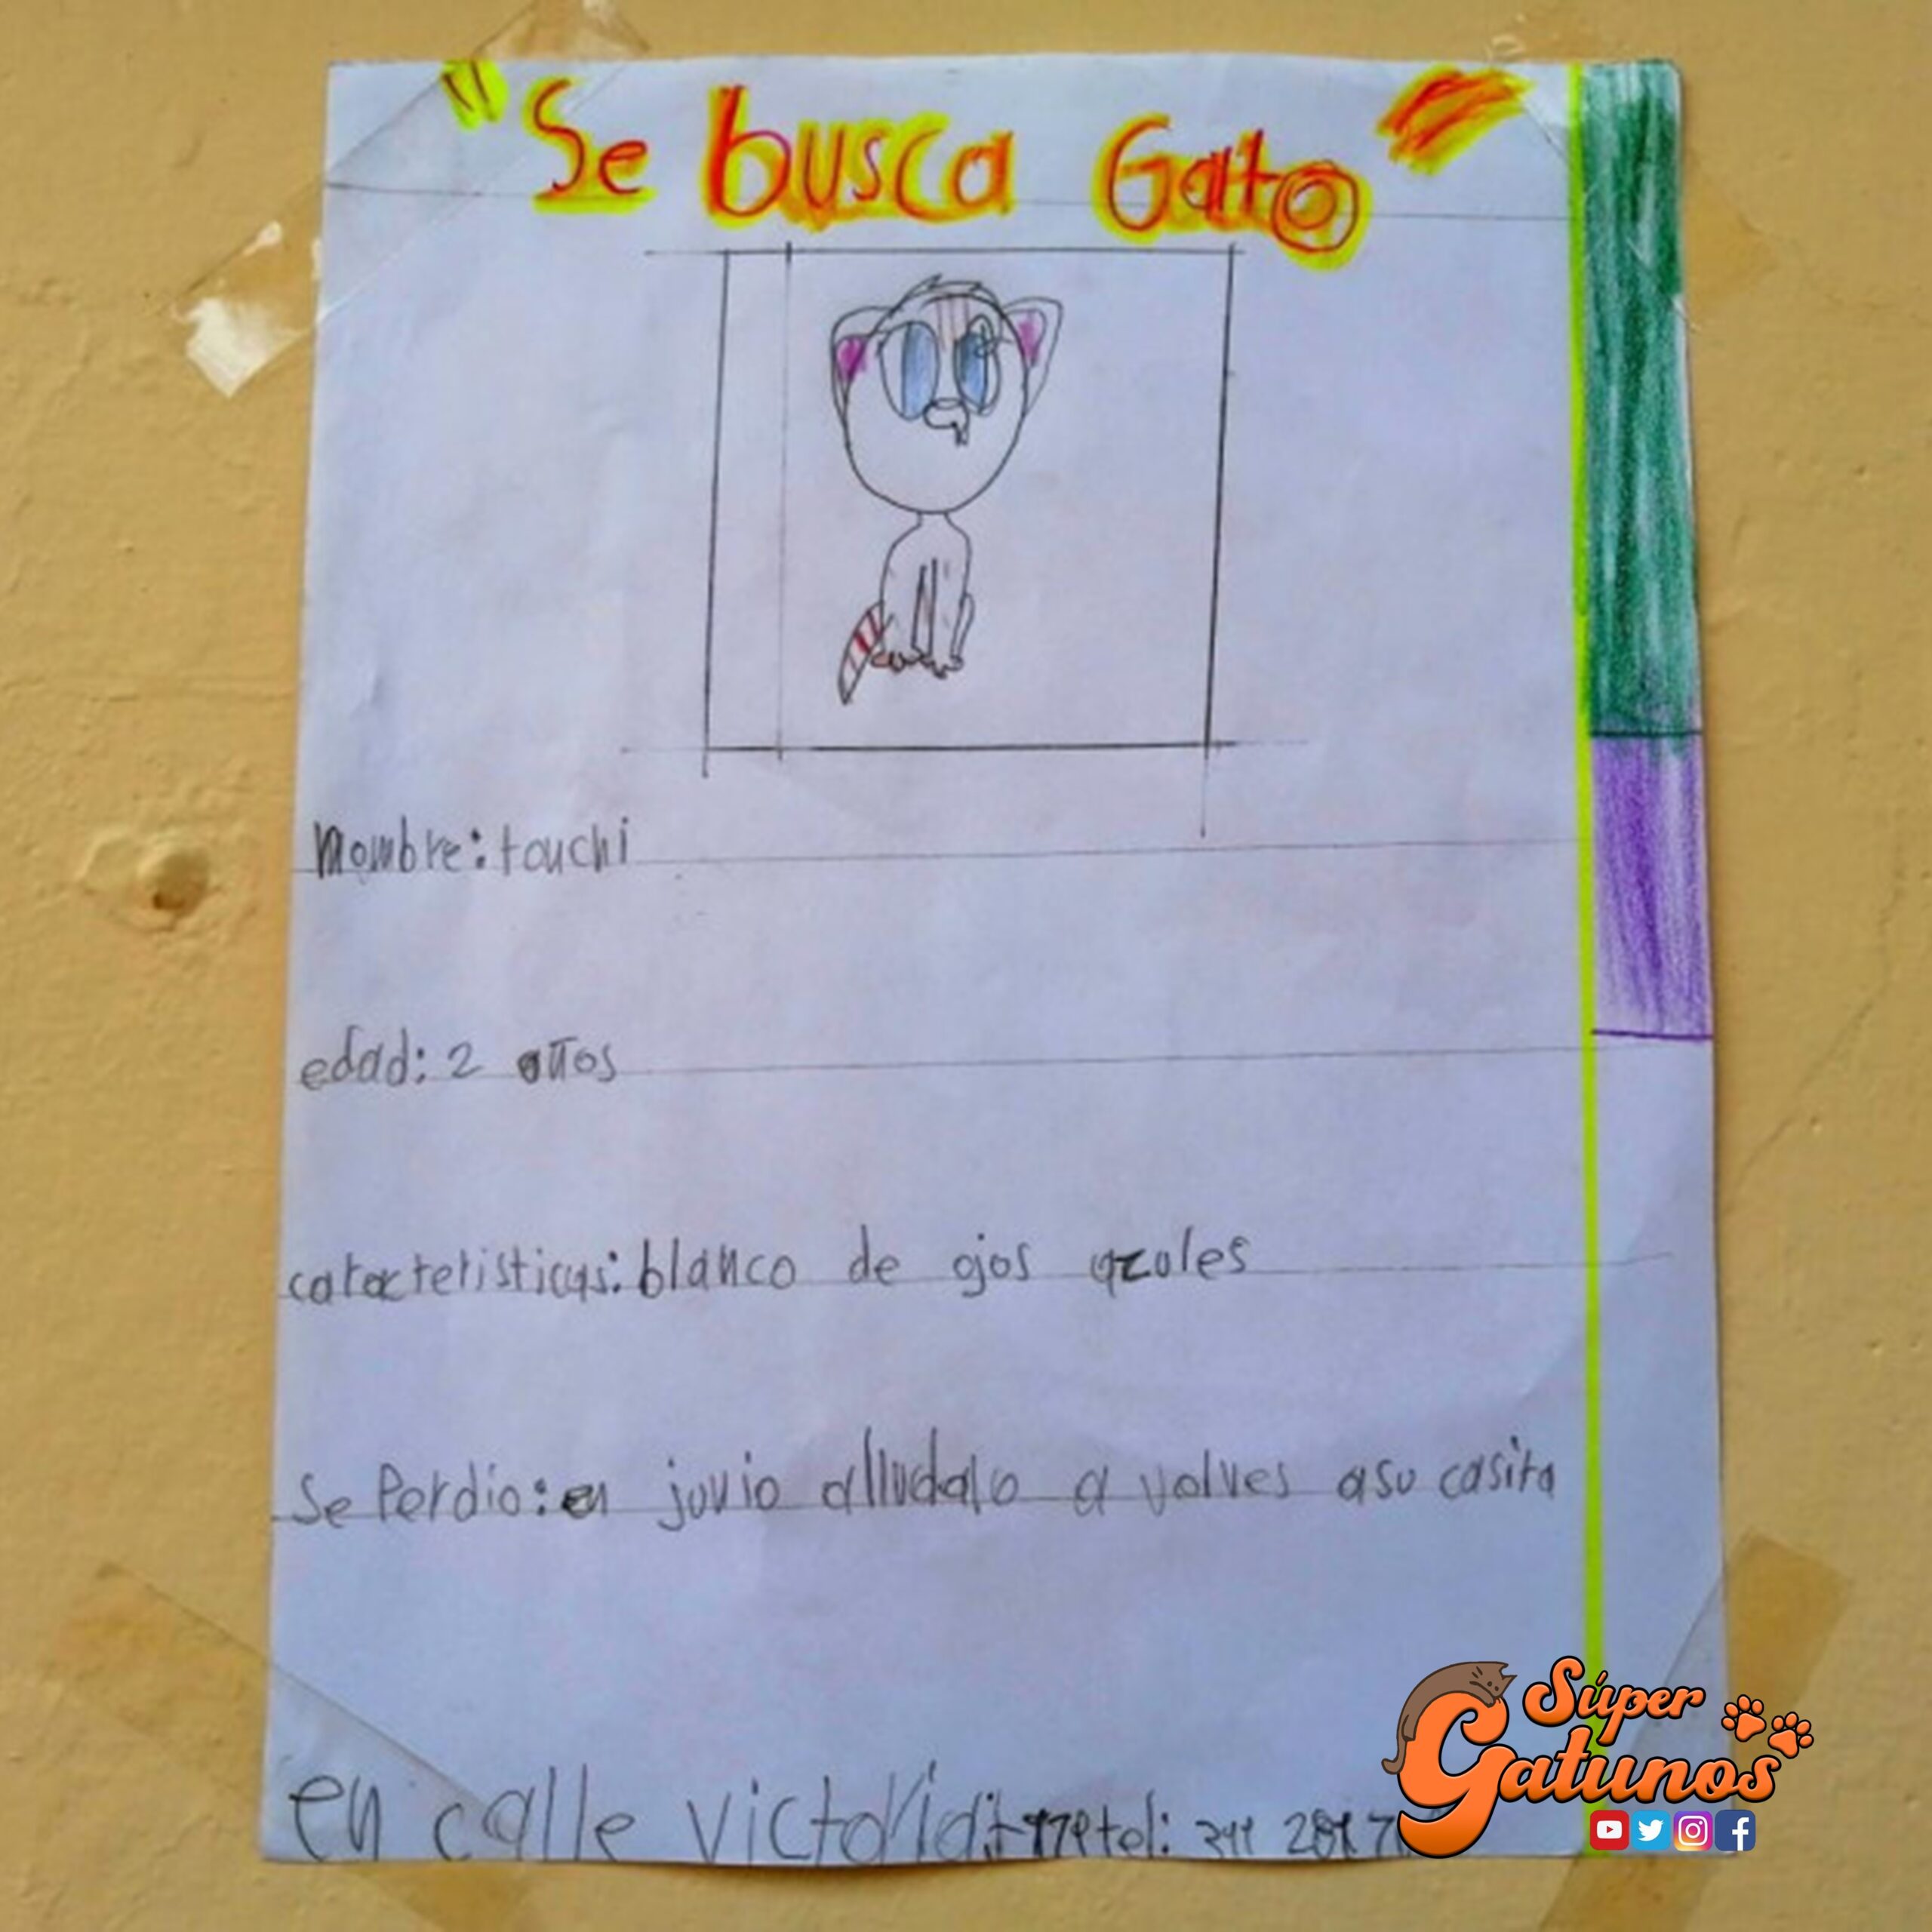 "Se busca Gato"
nombre: touchi
edad: 2 años
caracteristicas: blanco de ojos azules
Se Perdio: en junio alludalo a volves asu casita
en calle victoria tel:
Súper
Gatunos